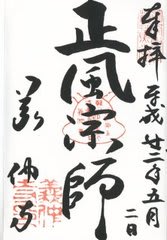 奉拝 平成廿二年五月
二日
正風宗師
義仲寺